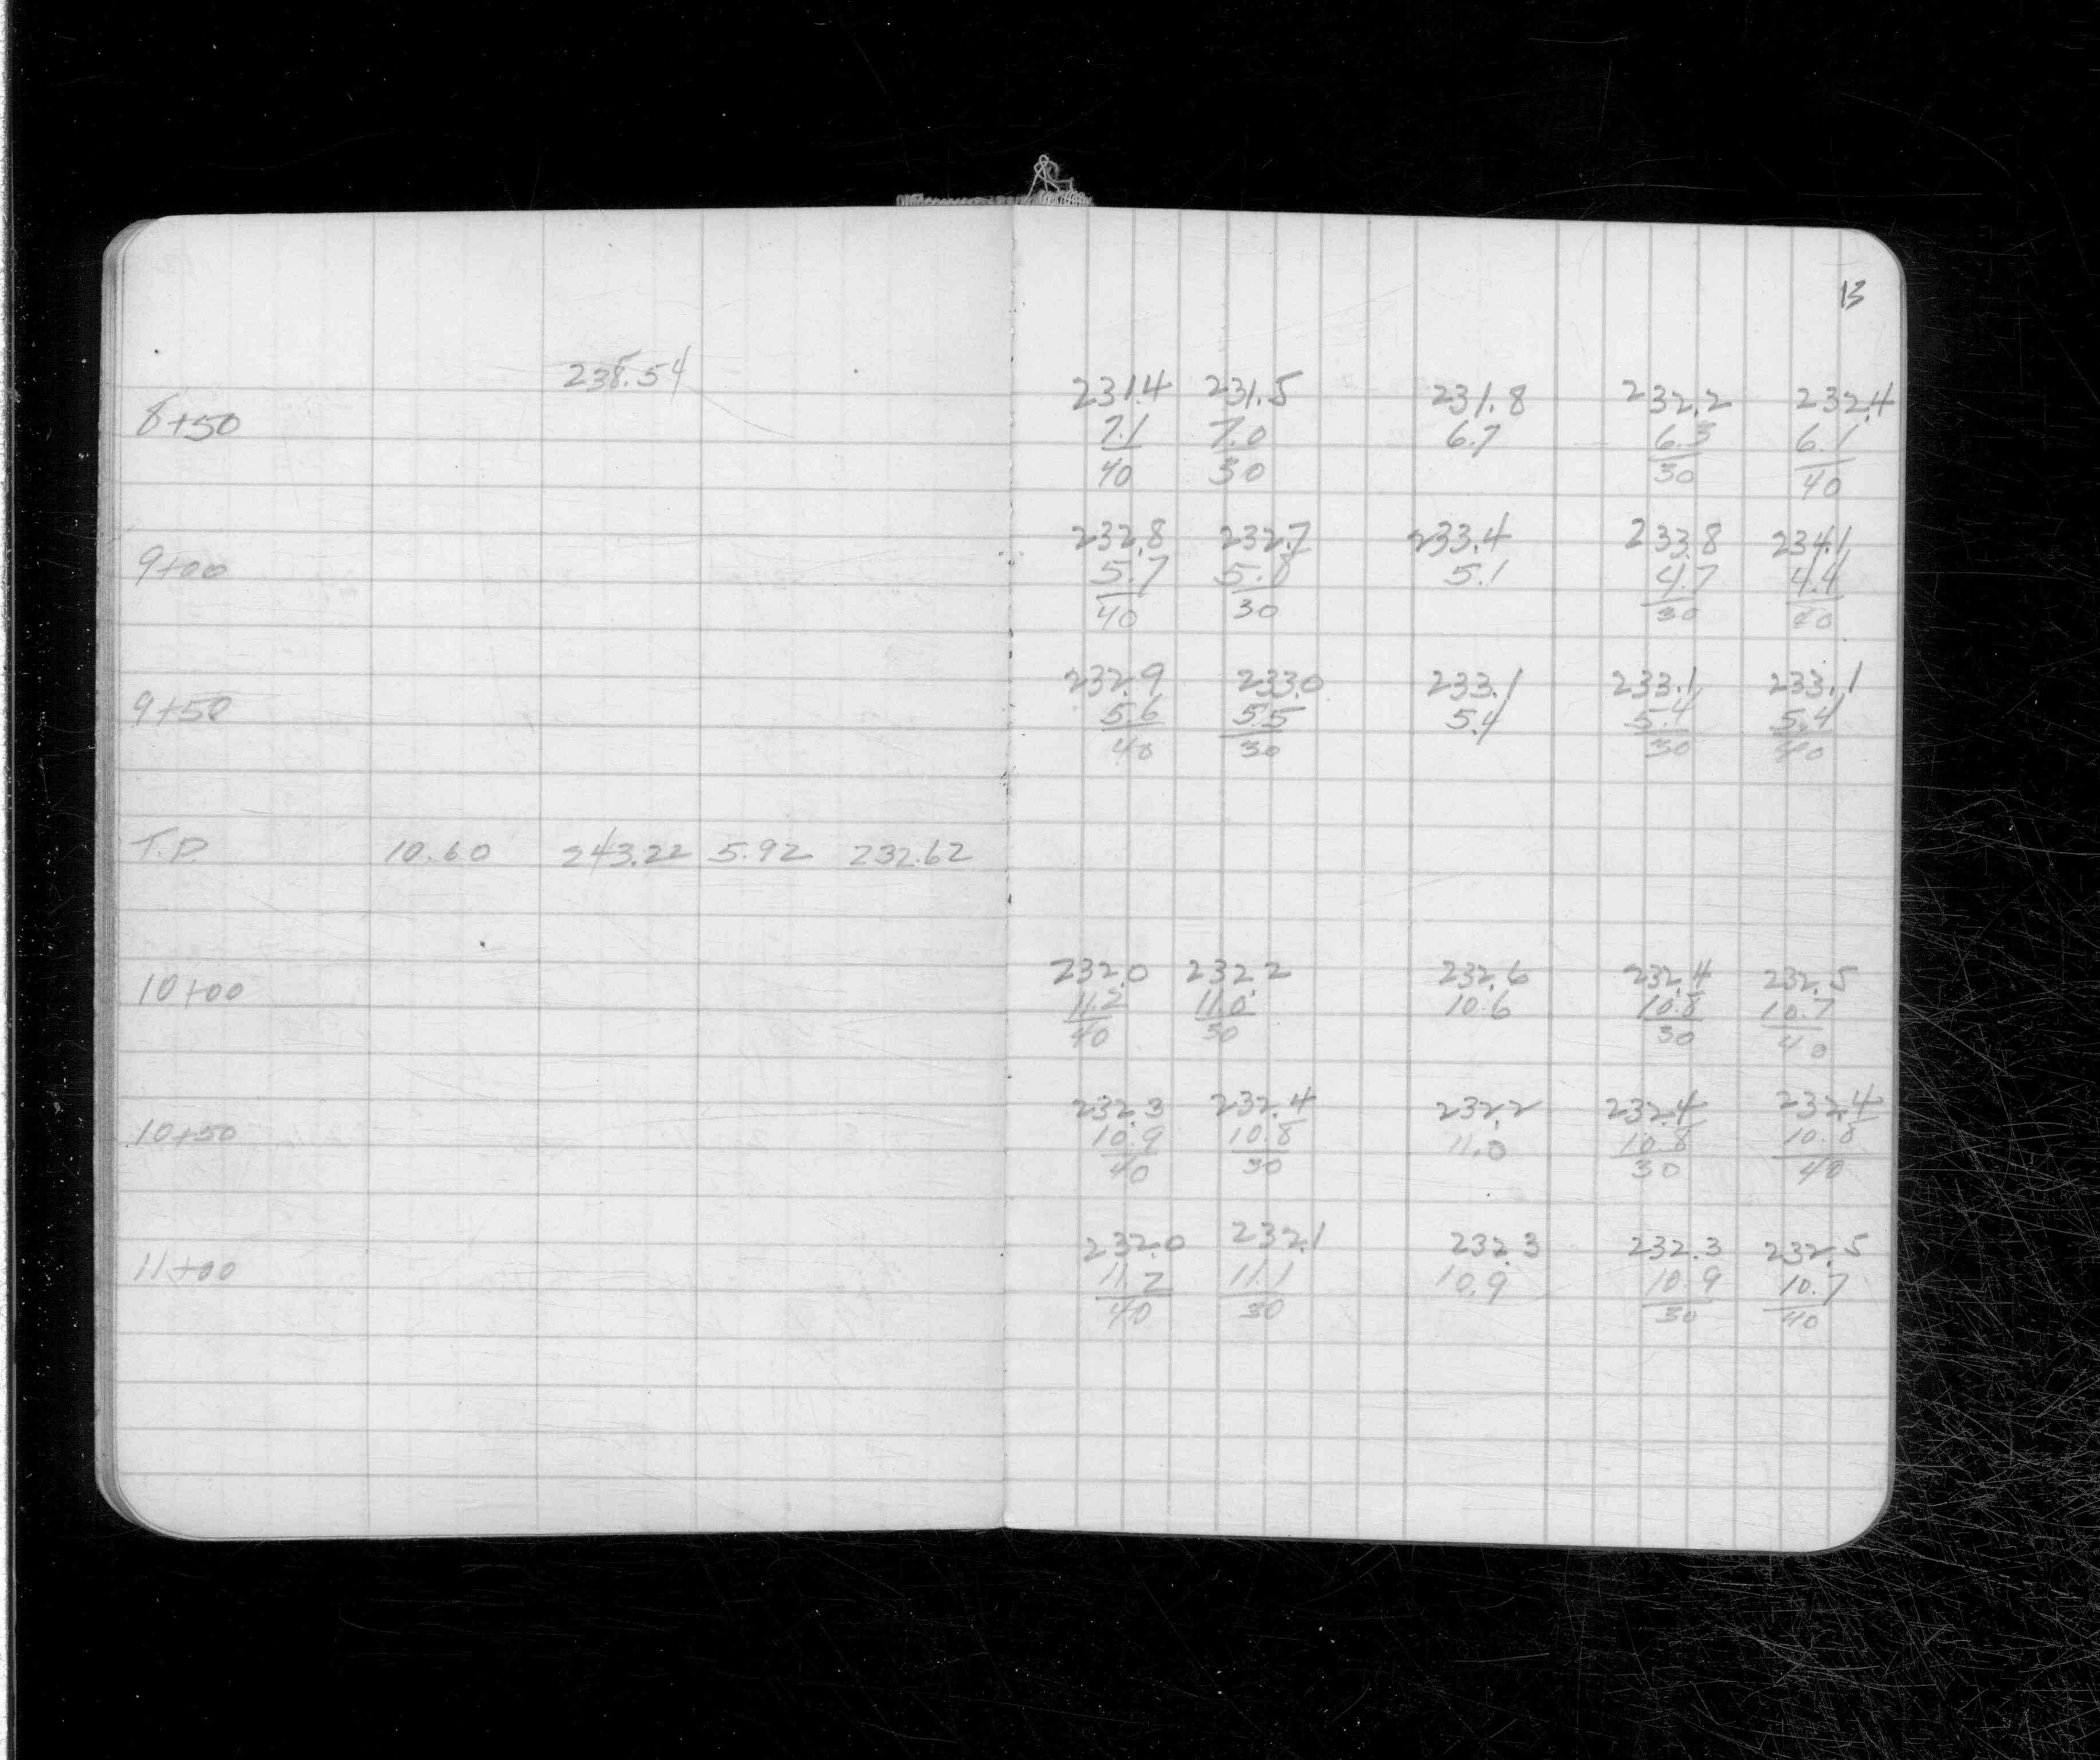 13
238.54
231.4 231.5 231.8 232.2 232.4
8+50 7.1 7.0 6.7 6.3 6.1
40 30 30 40
232.8 232.7 233.4 233.8 234.1
9+00 5.7 5.8 5.1 4.7 4.4
40 30 30 40
232.9 233.0 233.1 233.1 233.1
9+50 5.6 5.5 5.4 5.4 5.4
40 30 30 40
T.P. 10.60 243.22 5.92 232.62
232.0 232.2 232.6 232.4 232.5
10+00 11.2 11.0 10.6 10.8 10.7
40 30 30 40
232.3 232.4 232.2 232.4 232.4
10+50 10.9 10.8 11.0 10.8 10.8
40 30 30 40
232.0 232.1 232.3 232.3 232.5
11+00 11.2 11.1 10.9 10.9 10.7
40 30 30 40